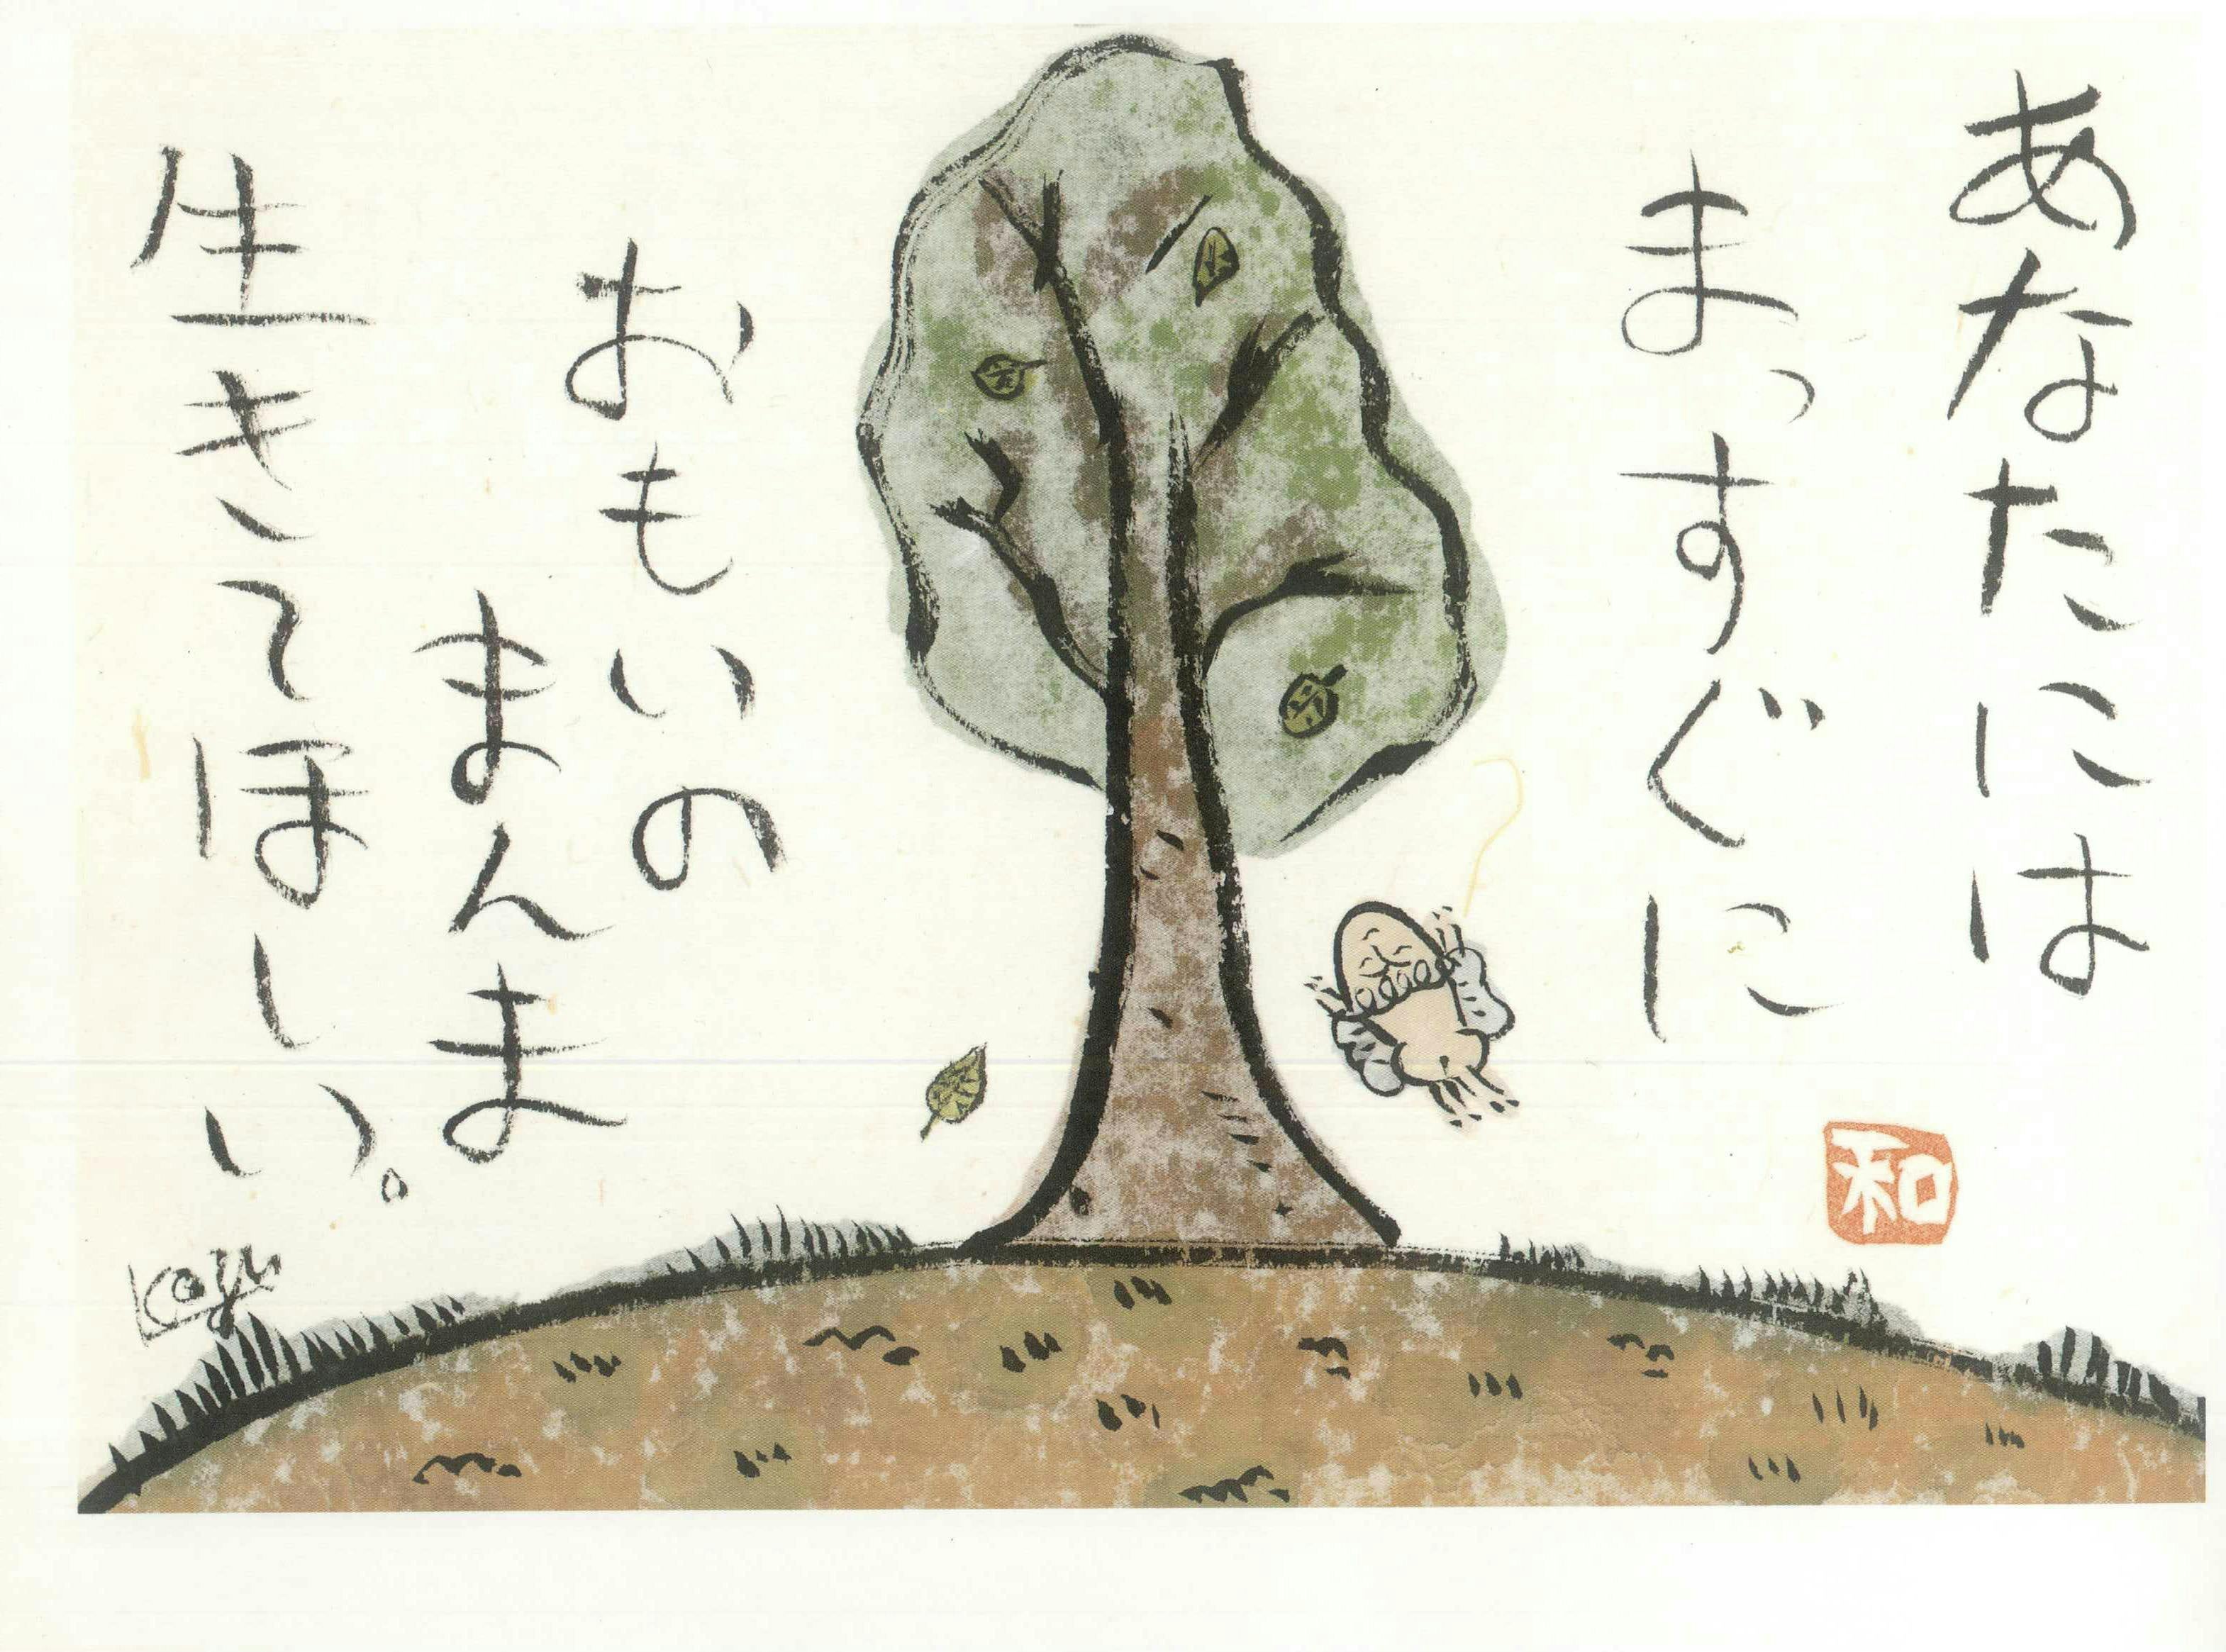 あなたには
まっすぐに
おもいの
まんま
生きてほしい。
和